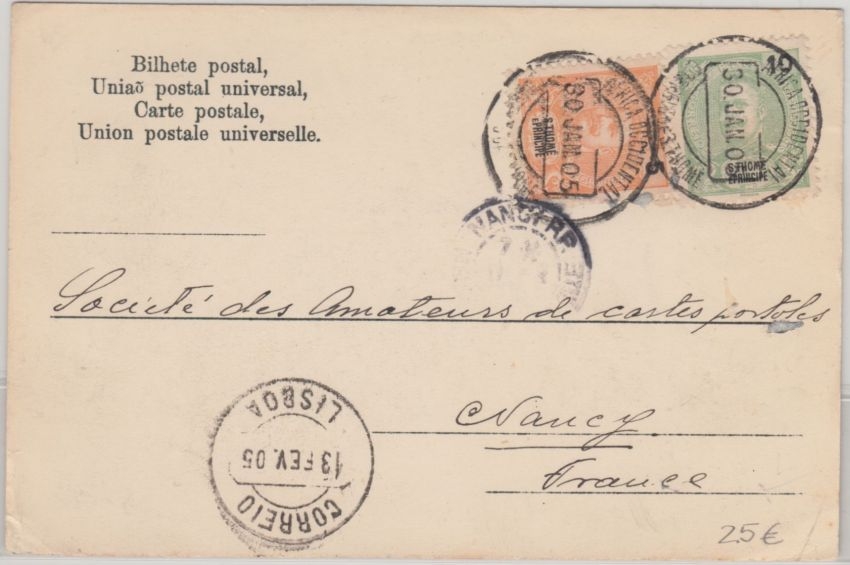 Bilhete postal,
Uniaõ postal universal,
Carte postale,
Union postale universelle.
AFRICA OCCIDENTAL
30.JAN.05
S.THOMÉ
E PRINCIPE
5
AFRICA OCCIDENTAL
30.JAN.0
S.THOMÉ
E PRINCIPE
10
NANCY RP
Société des Amateurs de cartes postales
Nancy
France
CORREIO
13 FEV. 05
LISBOA
25€